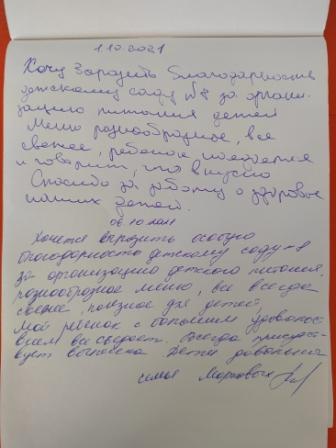 1.10.2021
Хочу выразить благодарность
детскому саду №8 за органи-
зацию питания детей
Меню разнообразное, все
свежее, ребенок наедается
и говорит, что вкусно
Спасибо за заботу о здоровье
наших детей.
06 10 2021
Хочется выразить особую
благодарность детскому саду
за организацию детского питания,
разнообразное меню, все всегда
свежее, полезное для детей,
Мой ребенок с большим удовольст
вием все съедает. Всегда присутст-
вует Дети довольны
семья Марковых